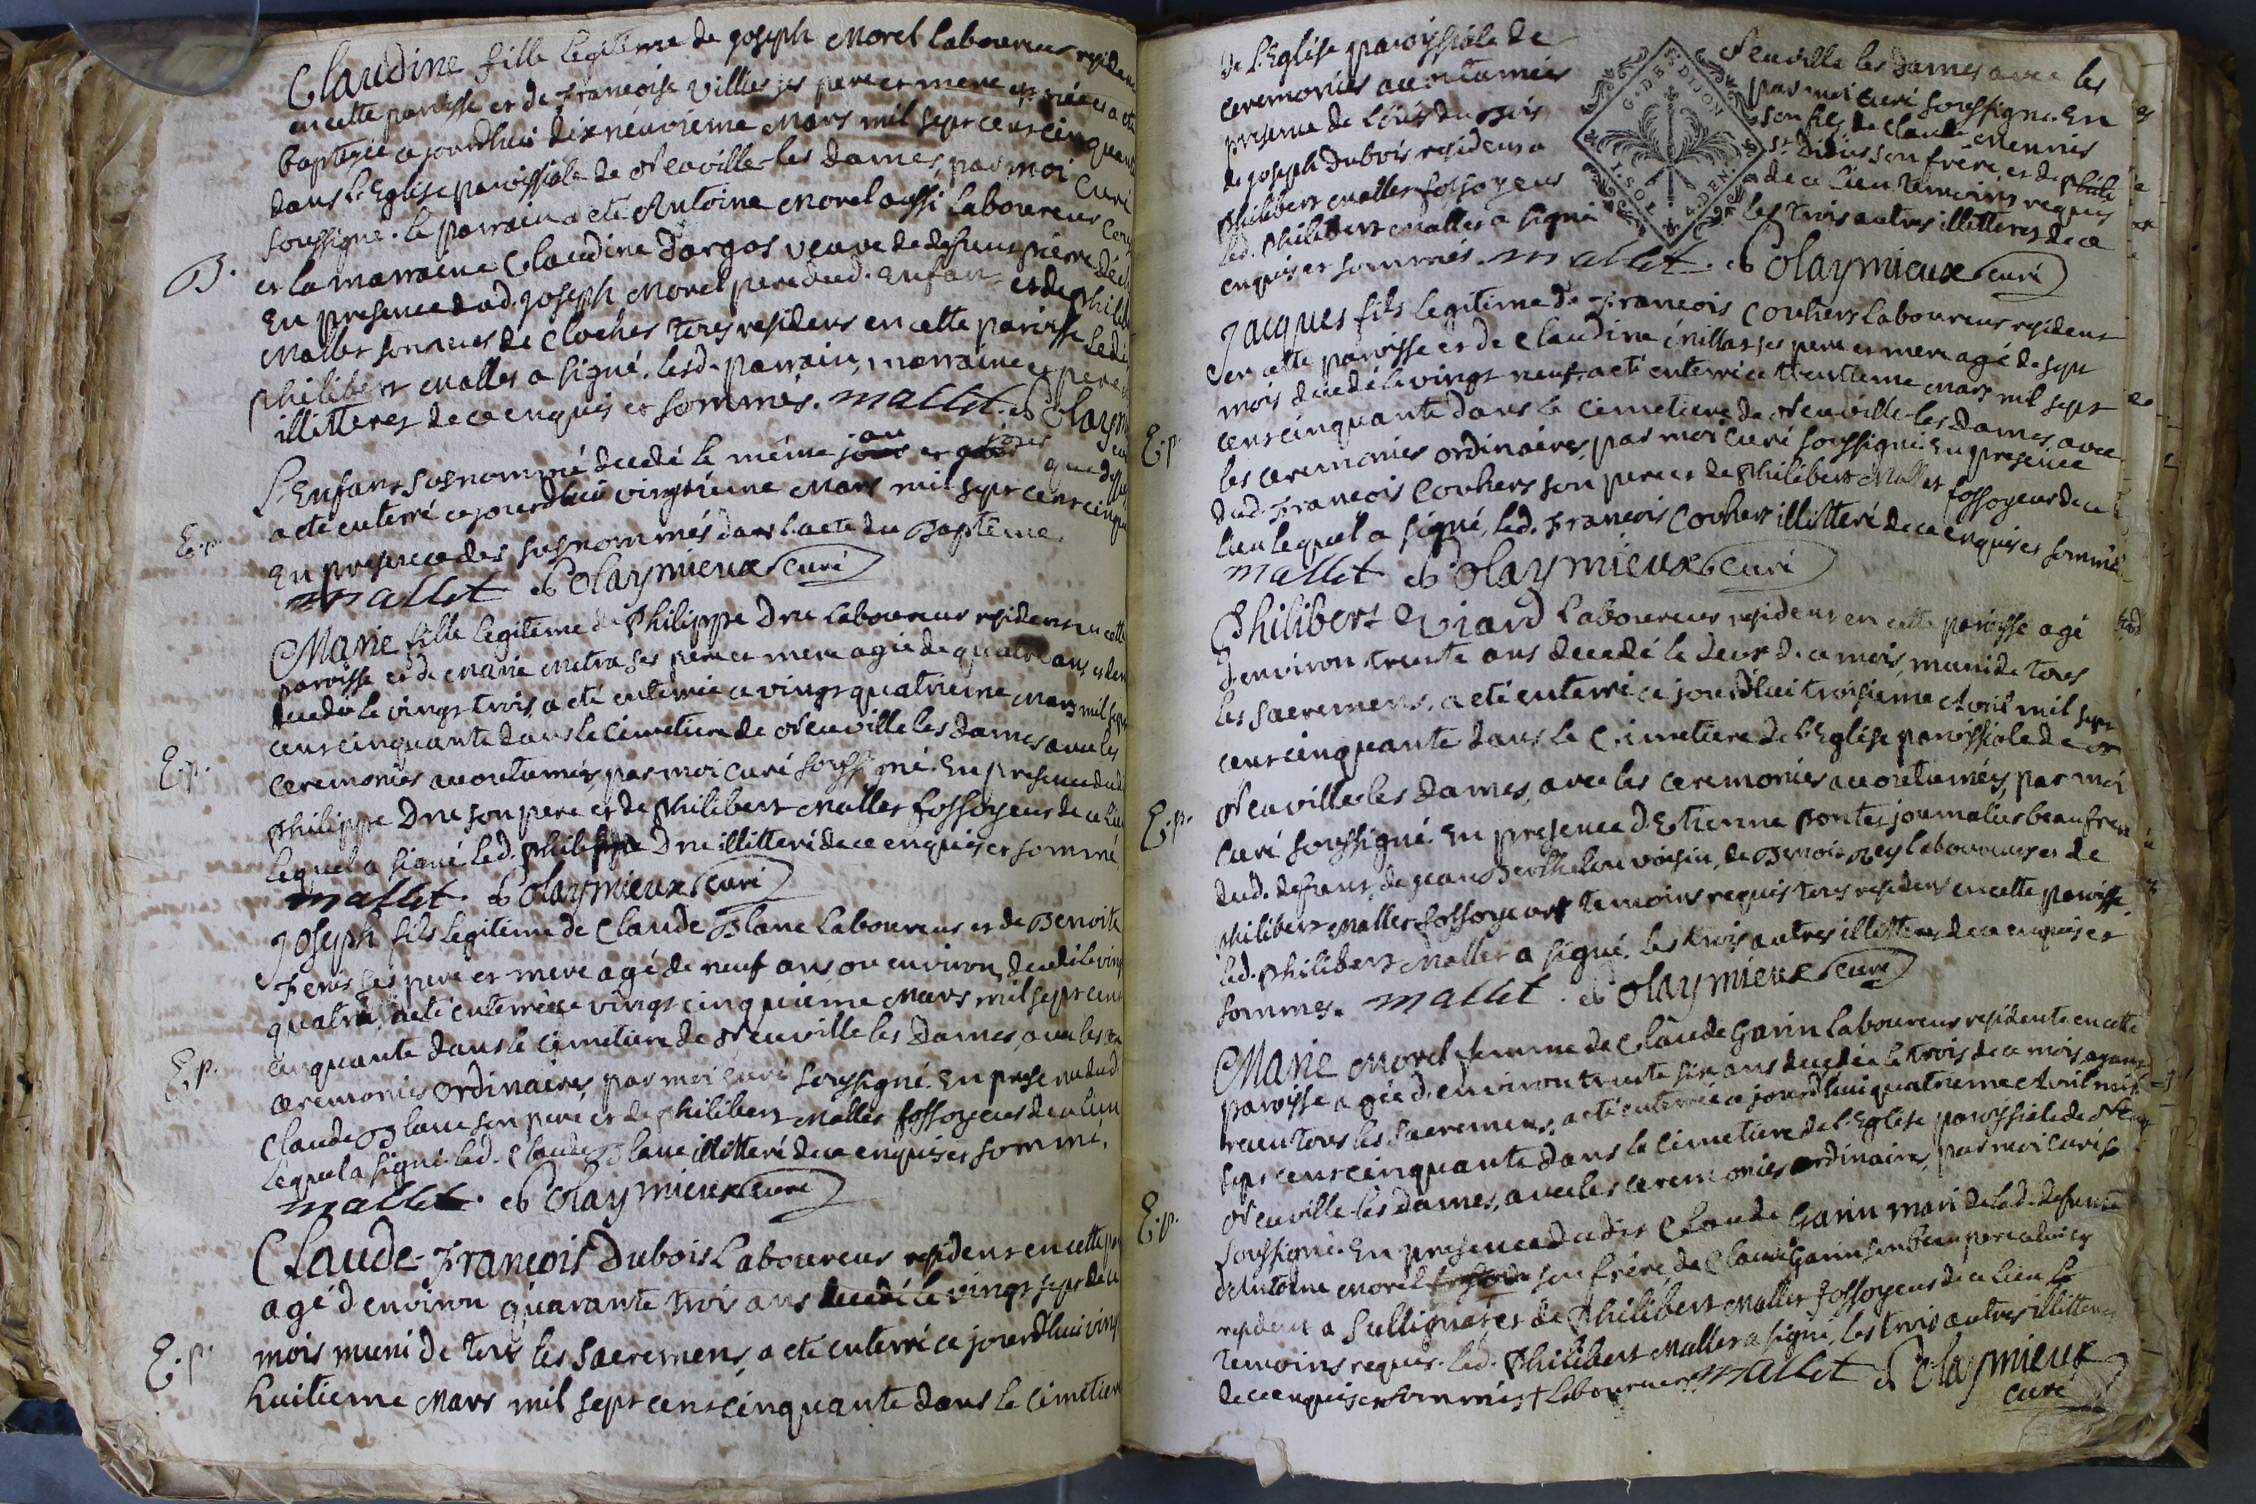 Claudine fille legitime de joseph Morel laboureur resident
en cette paroisse et de françoise Villier ses pere et mere et née a eté
baptizée ce jourdhui dix neuvieme Mars mil sept cent cinquante
dans l'Eglise paroissiale de Neuville-les dames, par moi Curé
soussigné. le parrain a eté Antoine Morel aussi laboureur
et la marraine Claudine Dargos veuve de defunt pierre
B.
En presence dud. joseph Morel pere dud. Enfan et de Phili
Mallet sonneur de Cloches tous residens en cette paroisse led.
philibert Mallet a signé. lesd. parrain, marraine et pere
illitteres de ce enquis et sommés. mallet. Claymieux
L'Enfant susnommé decedé le même jour et
a eté enterré ce jourdhui vingtieme Mars mil sept cent cinqu
E.p.
En presence des susnommés dans l'acte du Baptême.
mallet Claymieux Curé
Marie fille legitime de Philippe Dru laboureur resident en cette
paroisse et de Marie Metra ses pere et mere agée de quatre ans
decedée le vingt trois, a eté enterrée ce vingt quatrieme Mars mil sept
cent cinquante dans le Cimetiere de Neuville les Dames avec les
E.p.
ceremonies accoutumées, par moi Curé soussigné. En presence dud.
Philippe Dru son pere et de Philibert Mallet fossoyeur de ce lieu
lequel a signé led. Philippe Dru illitteré de ce enquis et sommé
mallet. Claymieux Curé
Joseph fils legitime de Claude Blanc laboureur et de Benoite
Feris ses pere et mere agé de neuf ans ou environ, decedé le vingt
quatre, a eté enterré ce vingt cinquieme Mars mil sept cent
cinquante dans le Cimetiere de Neuville les Dames, avec les
E.p.
ceremonies ordinaires, par moi Curé soussigné. En presence dud.
Claude Blanc son pere et de Philibert Mallet fossoyeur de ce lieu
lequel a signé. led. Claude Blanc illitteré de ce enquis et sommé.
mallet. Claymieux Curé
Claude-François Dubois Laboureur resident en cette
agé d'environ quarante trois ans decedé le vingt sept de ce
E.p.
mois muni de tous les Sacremens, a eté enterré ce jourdhui vingt
huitieme Mars mil sept cent cinquante dans le Cimetiere
de l'Eglise paroissiale de Neuville les dames avec les
ceremonies accoutumées par moi Curé soussigné. En
presence de Loüis du Bois son fils, de Claude Mennis
de joseph Dubois resident a St Didier son frere, et de phili
philibert Mallet fossoyeur de ce lieu temoins requis
led. philibert Mallet a signé les trois autres illitteres de ce
enquis et sommés. mallet. Claymieux Curé
G. DES. DIJON
1. SOL. 4. DEN.
Jacques fils legitime de François Couhert laboureur resident
en cette paroisse et de Claudine Millat ses pere et mere agé de sept
mois decedé le vingt neuf a eté enterré ce trentieme Mars mil sept
cent cinquante dans le Cimetiere de Neuville les Dames, avec
E.p.
les ceremonies ordinaires, par moi Curé soussigné. En presence
dud. François Couhert son pere et de Philibert Mallet fossoyeur de ce
lieu lequel a signé, led. François Couhert illitteré de ce enquis et sommé
mallet Claymieux Curé
Philibert Viard laboureur resident en cette paroisse agé
d'environ trente ans decedé le deux de ce mois, muni de tous
les Sacremens, a eté enterré ce jourdhui troisieme Avril mil sept
cent cinquante dans le Cimetiere de l'Eglise paroissiale de
Neuville les Dames, avec les ceremonies accoutumées, par moi
E.p.
Curé soussigné. En presence d'Etienne pontet journalier beaufrere
dud. defunt, de jean Berthelon voisin, de Benoit Rey laboureur et de
philibert Mallet fossoyeur temoins requis tous residens en cette paroisse.
led. philibert Mallet a signé. les trois autres illitteres de ce enquis et
sommés. mallet. Claymieux Curé
Marie Morel femme de Claude Garin laboureur residente en cette
paroisse agée d'environ trente six ans decedée le trois de ce mois ayant
recu tous les Sacremens, a eté enterrée ce jourdhui quatrieme Avril mil
sept cent cinquante dans le Cimetiere de l'Eglise paroissiale de
Neuville les Dames, avec les ceremonies ordinaires, par moi Curé
E.p.
soussigné. En presence dudit Claude Garin mari de lad. defunte
d'Antoine Morel son frere, de Claude Garin son beau pere
resident a Sullignat et de Philibert Mallet fossoyeur de ce lieu
temoins requis. led. Philibert Mallet a signé, les trois autres illitteres
de ce enquis et sommés + laboureur. mallet Claymieux
curé